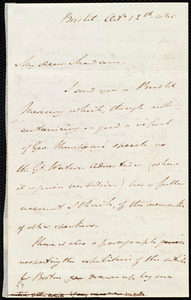 Bristol. Oct. 12th 1846
My dear Madam,
I send you a Bristol
Mercury which, though not
containing so good a report
of Geo. Thompson's speech as
the Gt. Western Advertiser (where
it again ) has a fuller
account I think, of the remarks
of other speakers.
There is also a paragraph
respecting the exhibition of the articles
for Boston drawn up by one